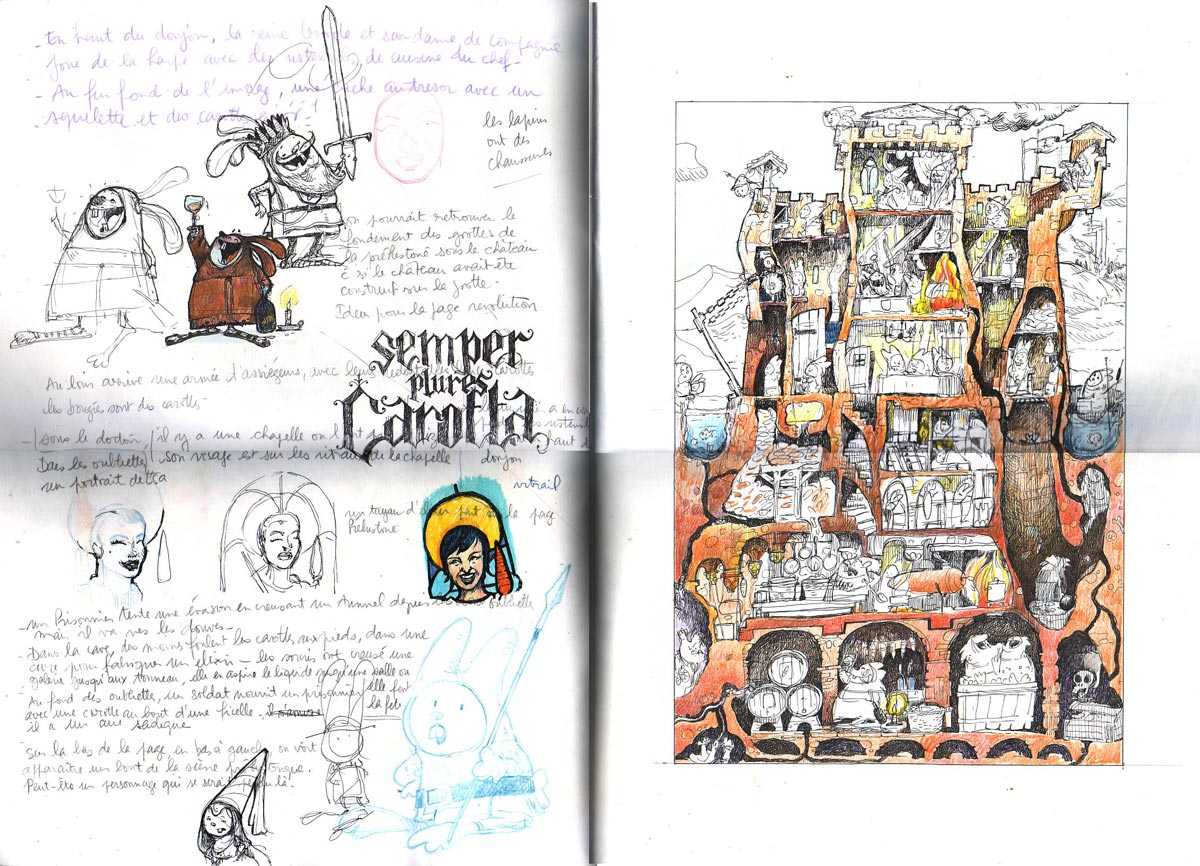 - En haut du donjon, la reine et san dame de compagnie
joue de la harpe avec des ustensiles de cuisine du chef -
- Au fin fond de l'image, une cache au tresor avec un
squelette et des carottes
les lapins
ont des
chaussures
on pourrait retrouver le
fondement des grottes de
la préhistoire sous le château
c si le château avait été
construit sur la grotte.
Idem pour la page revolution
semper
plures
Carotta
Au loin arrive une armée d'assiégeurs, avec leur carottes
les bougies sont des carottes
- sous le donjon, il y a une chapelle on
Dans les oubliettes, son visage est sur les vitraux de la chapelle
un portrait de
donjon
vitrail
un tuyau d' part la page
Préhistoire
- un Prisonnier tente une évasion en creusant un tunnel depuis oubliette
mais il va vers les douves -
- Dans la cave, des moines foulent les carottes aux pieds, dans une
cuve pour fabriquer un élixir - les souris ont creusé une
galerie jusqu'aux tonneau, elle en aspire le liquide jusqu'une salle ou
elle font
la fete
Au fond des oubliettes, un soldat nourrit un prisonnier
avec une carotte au bout d'une ficelle.
il a un air sadique
Sur la bas de la page en bas à gauche on voit
apparaître un bout de la scène
Peut-être un personnage qui se serait là.